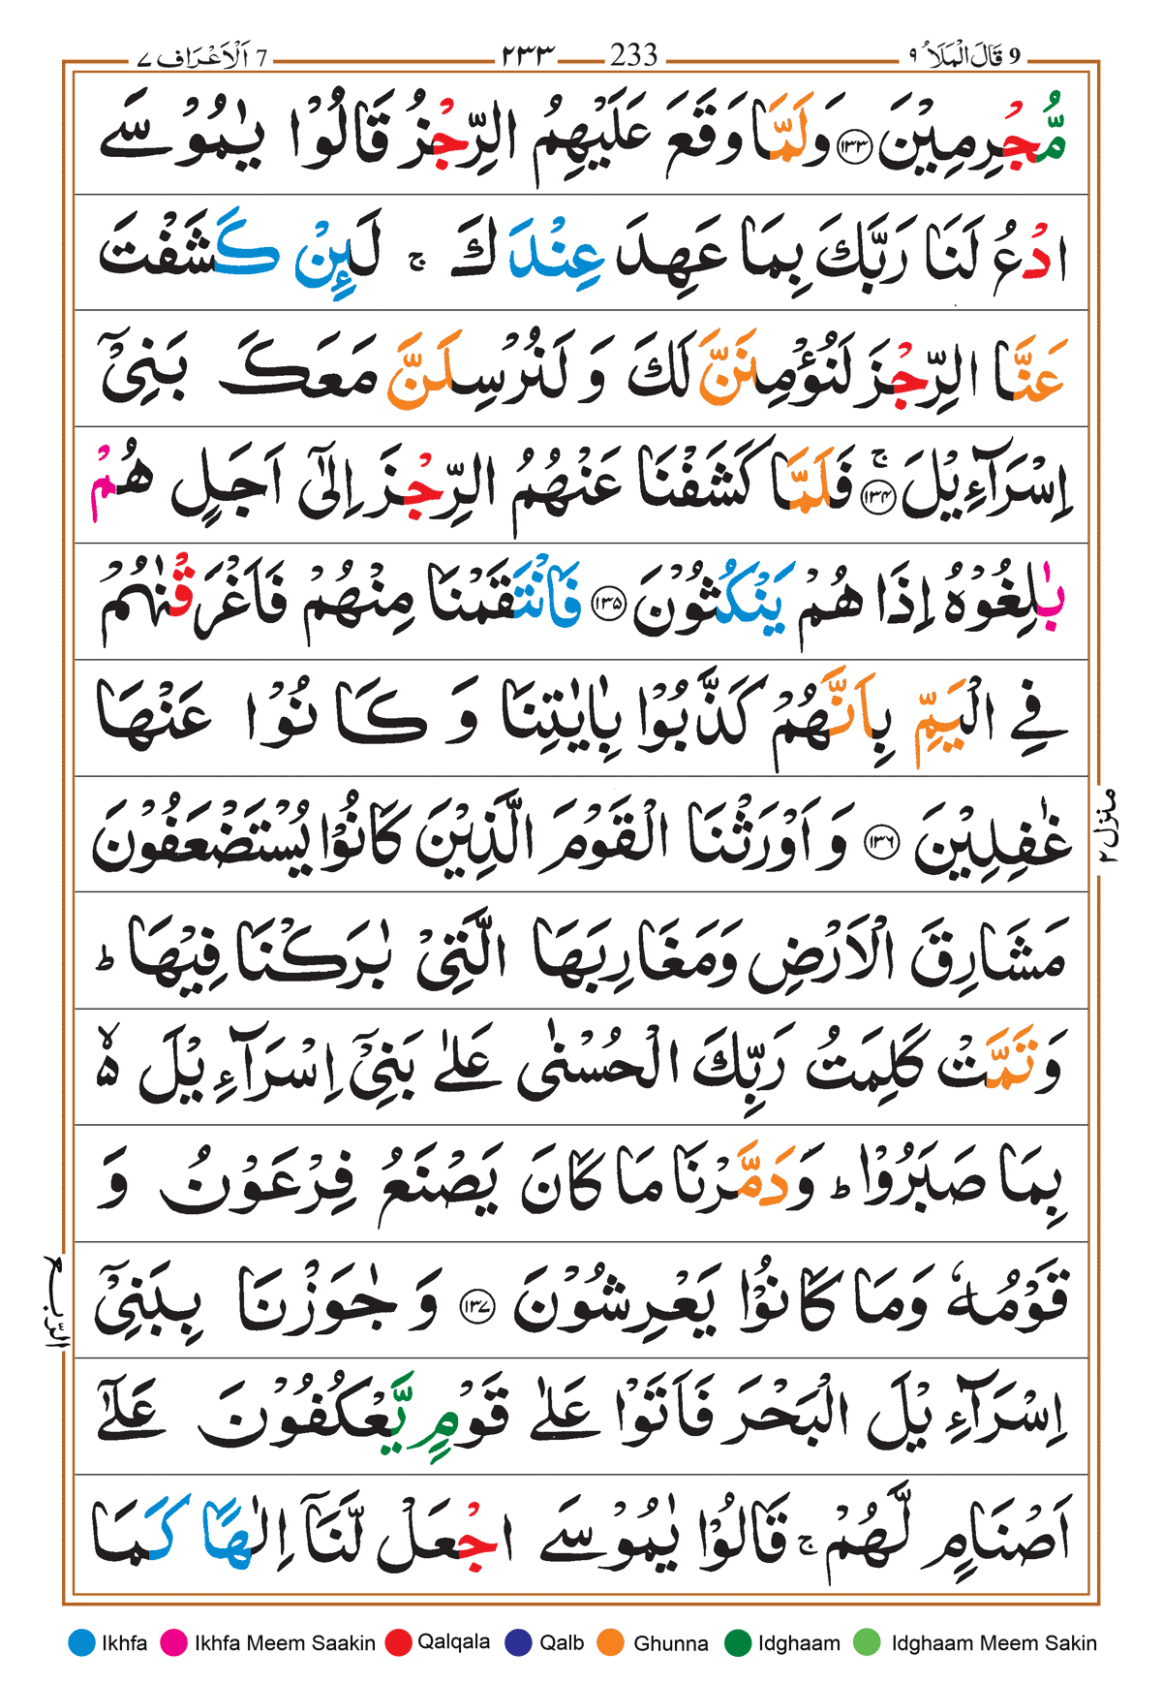 9 قَالَ الْمَلَاُ ۹ 233 ۲۳۳ 7 اَلْاَعْرَاف ۷
مُّجْرِمِيْنَ ۱۳۳ وَلَمَّا وَقَعَ عَلَيْهِمُ الرِّجْزُ قَالُوْا يٰمُوْسَے
ادْعُ لَنَا رَبَّكَ بِمَا عَهِدَ عِنْدَكَ ۚ لَئِنْ كَشَفْتَ
عَنَّا الرِّجْزَ لَنُؤْمِنَنَّ لَكَ وَ لَنُرْسِلَنَّ مَعَكَ بَنِيْٓ
اِسْرَآءِيْلَ ۚ ۱۳۴ فَلَمَّا كَشَفْنَا عَنْهُمُ الرِّجْزَ اِلٰٓى اَجَلٍ هُمْ
بٰلِغُوْهُ اِذَا هُمْ يَنْكُثُوْنَ ۱۳۵ فَانْتَقَمْنَا مِنْهُمْ فَاَغْرَقْنٰهُمْ
فِے الْيَمِّ بِاَنَّهُمْ كَذَّبُوْا بِاٰيٰتِنَا وَ كَانُوْا عَنْهَا
غٰفِلِيْنَ ۱۳۶ وَ اَوْرَثْنَا الْقَوْمَ الَّذِيْنَ كَانُوْا يُسْتَضْعَفُوْنَ
مَشَارِقَ الْاَرْضِ وَمَغَارِبَهَا الَّتِيْ بٰرَكْنَا فِيْهَا ؕ
وَتَمَّتْ كَلِمَتُ رَبِّكَ الْحُسْنٰى عَلٰے بَنِيْٓ اِسْرَآءِيْلَ ۵ۙ
بِمَا صَبَرُوْا ؕ وَدَمَّرْنَا مَا كَانَ يَصْنَعُ فِرْعَوْنُ وَ
قَوْمُهٗ وَمَا كَانُوْا يَعْرِشُوْنَ ۱۳۷ وَ جٰوَزْنَا بِبَنِيْٓ
اِسْرَآءِيْلَ الْبَحْرَ فَاَتَوْا عَلٰے قَوْمٍ يَّعْكُفُوْنَ عَلٰٓے
اَصْنَامٍ لَّهُمْ ۚ قَالُوْا يٰمُوْسَے اجْعَلْ لَّنَآ اِلٰهًا كَمَا
منزل ۲
الرّبع
Ikhfa Ikhfa Meem Saakin Qalqala Qalb Ghunna Idghaam Idghaam Meem Sakin